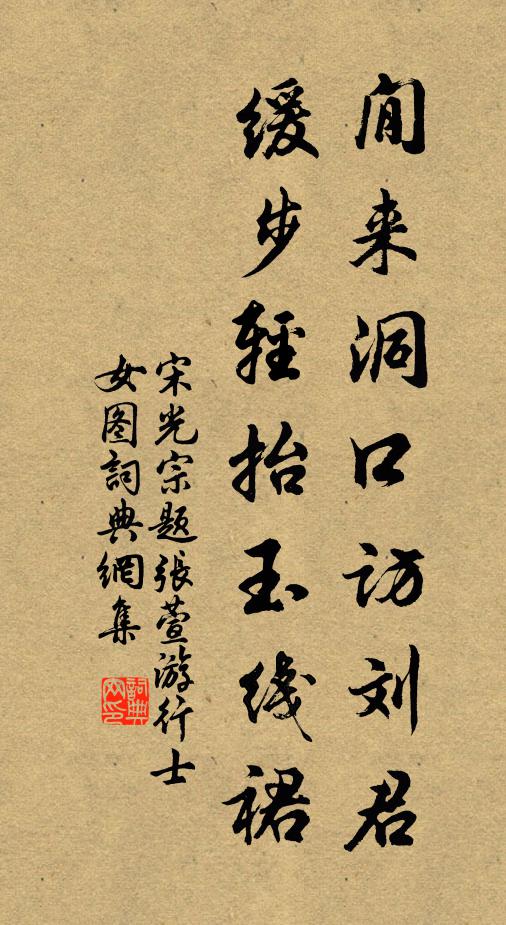 閒来洞口访刘君
缓步輕抬玉线裙
宋光宗题張萱游行士
女图詞典網集
詞典网印